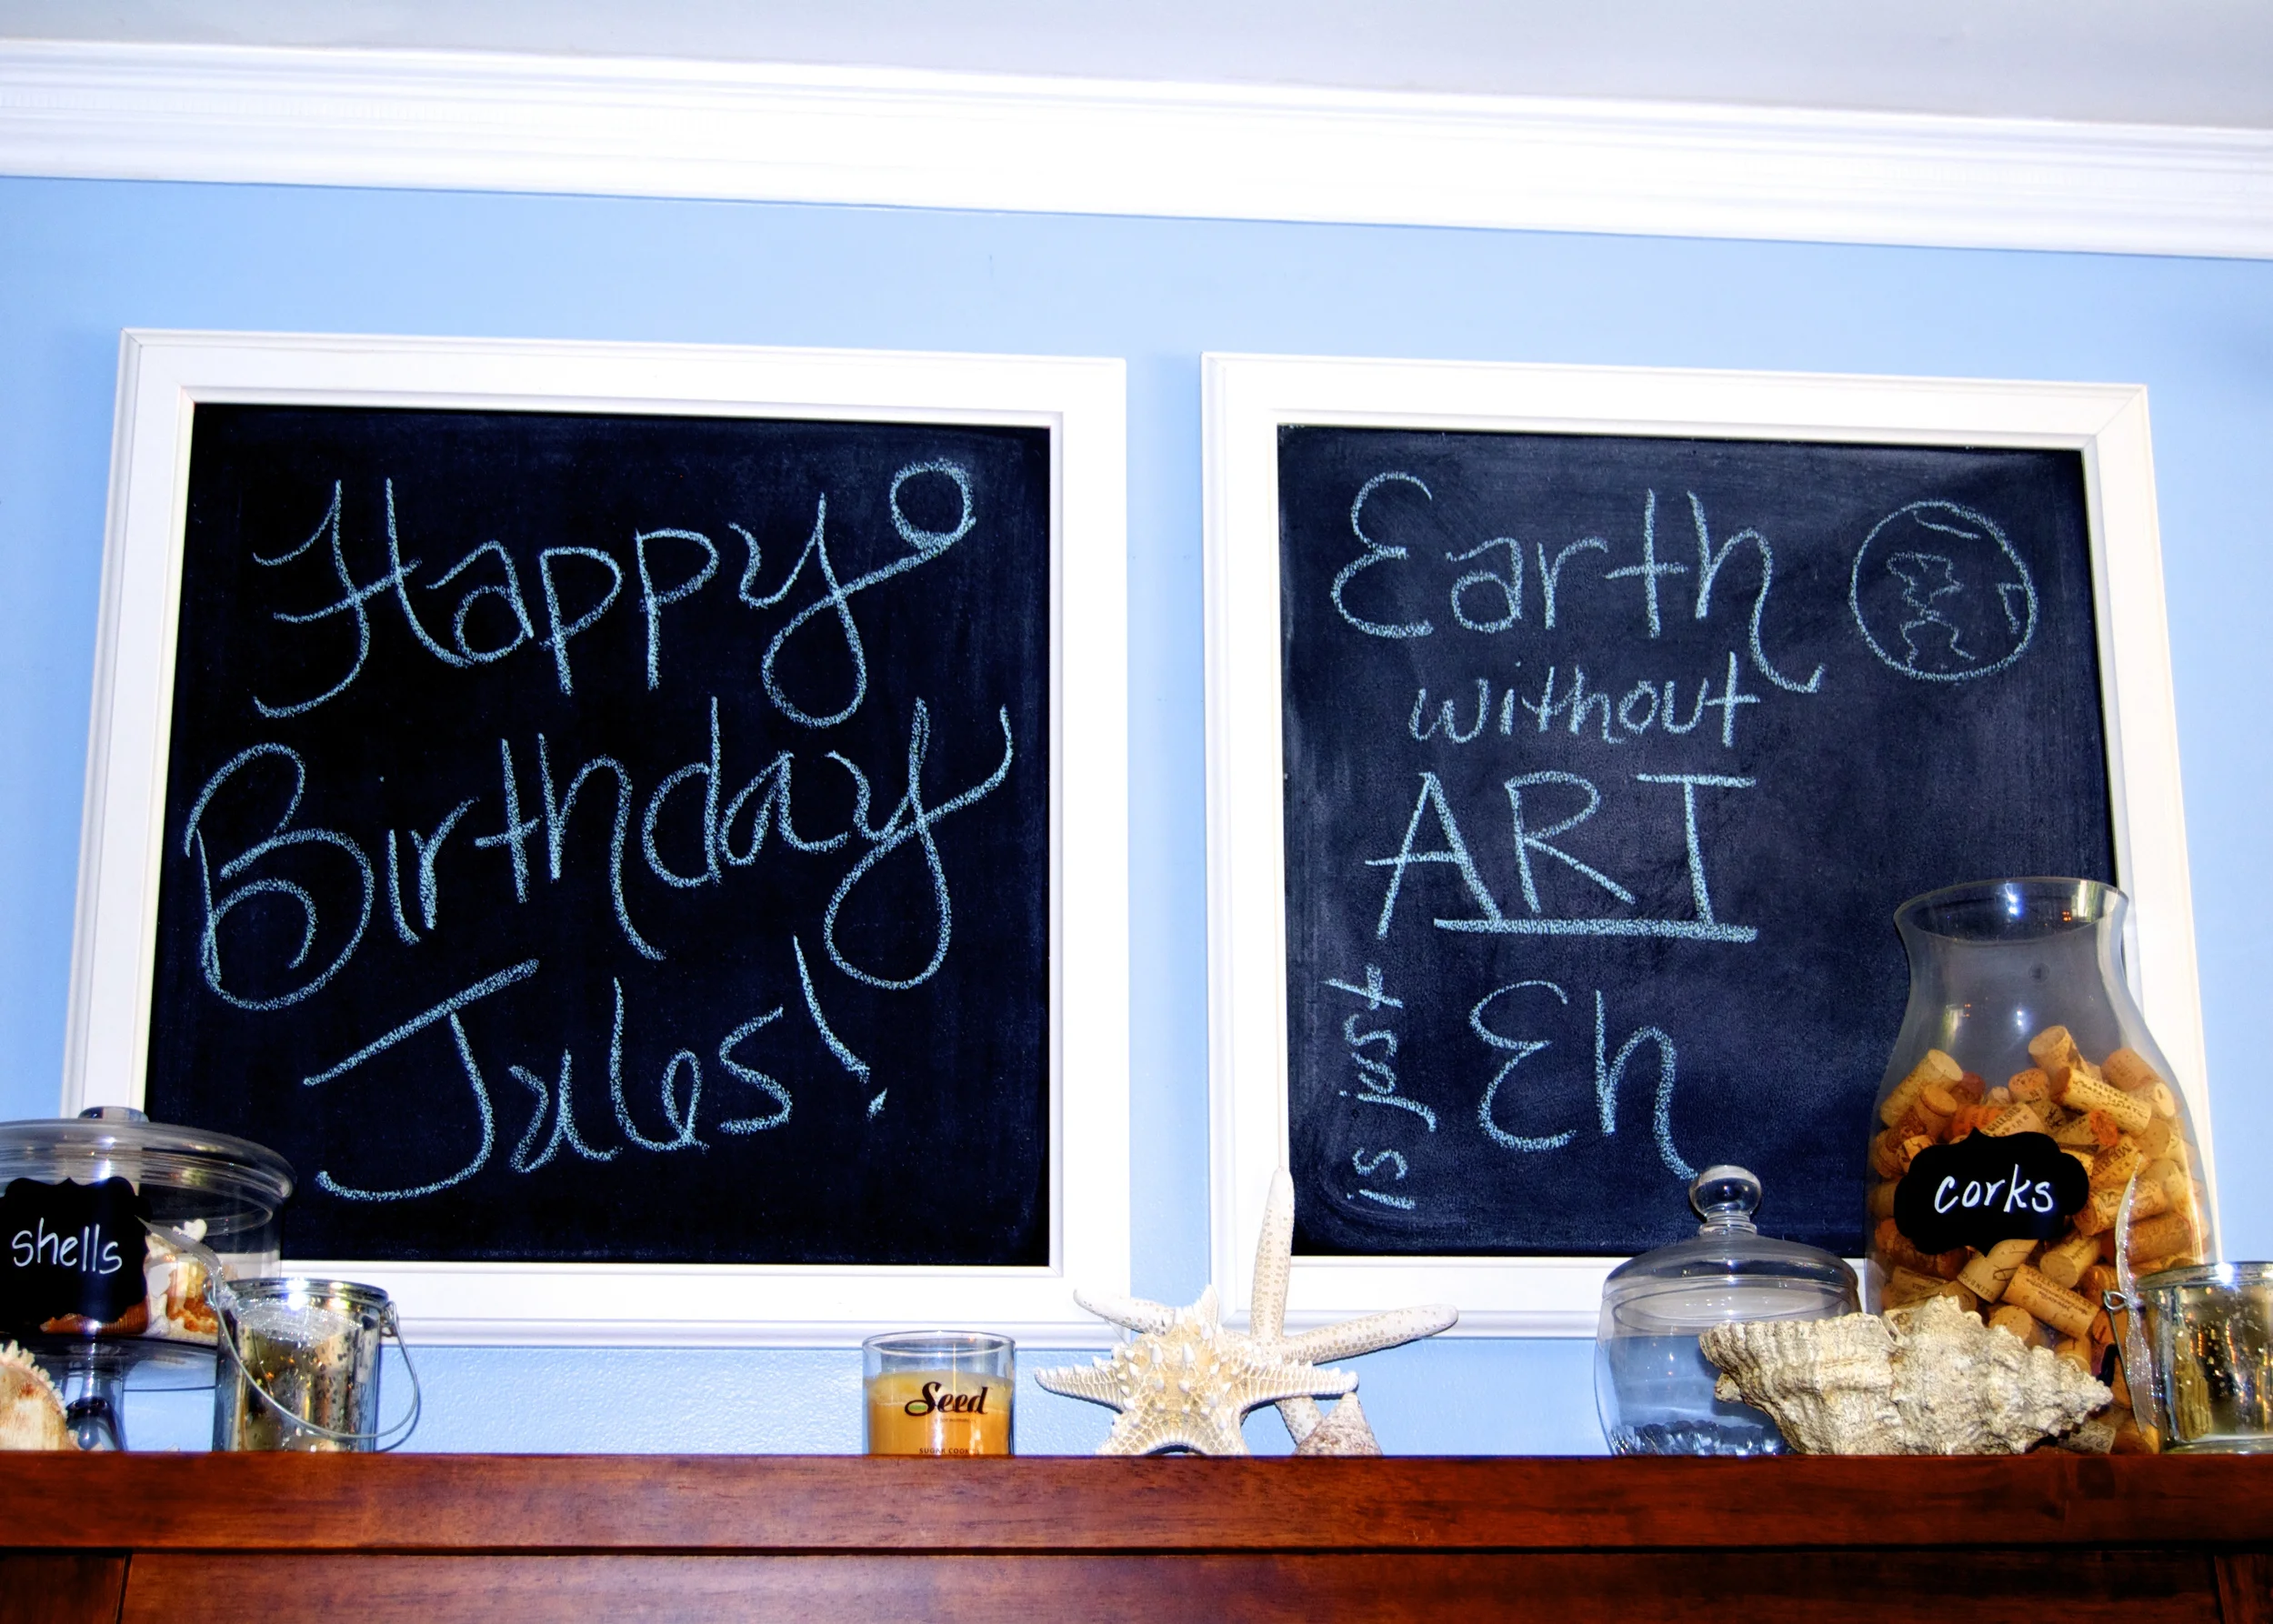 Happy
Birthday
Jules!
Earth
without
ART
is just
Eh
shells
corks
Seed